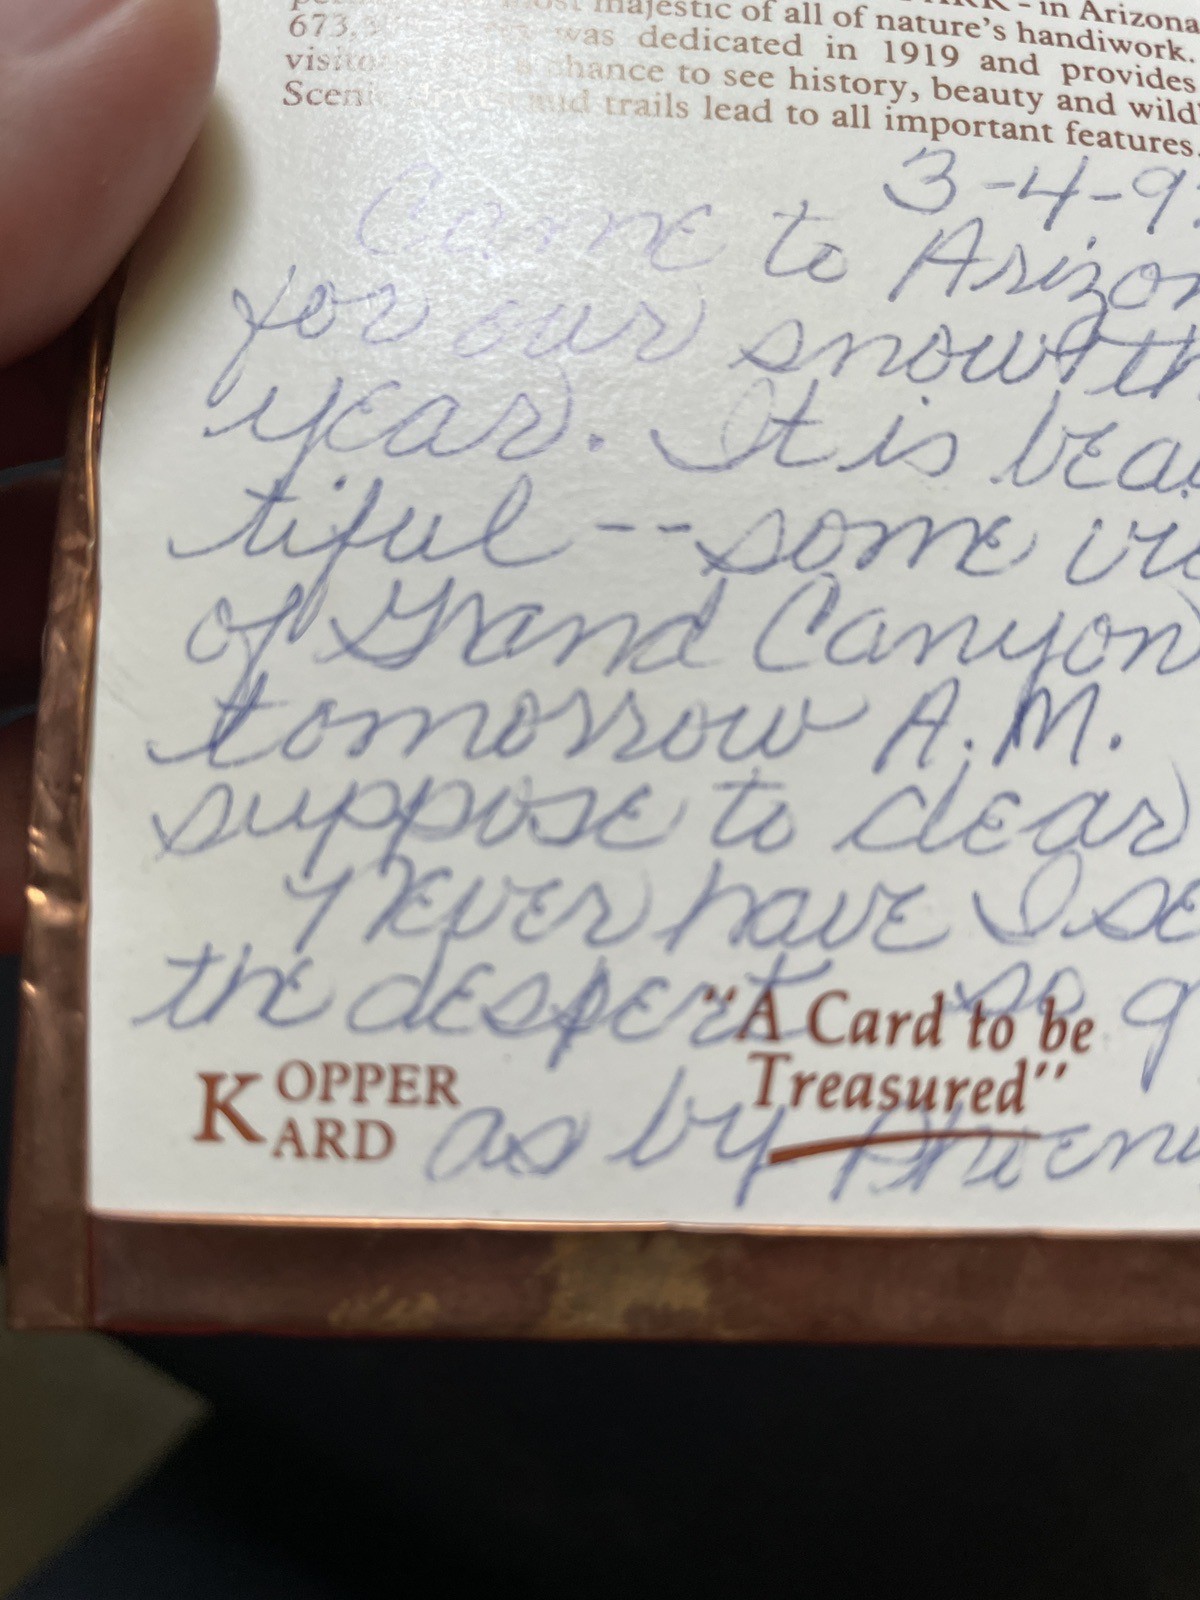 - in Arizona
most majestic of all of nature's handiwork.
673, was dedicated in 1919 and provides
chance to see history, beauty and wild
and trails lead to all important features.
3-4-9
Came to Arizon
for our snow th
year. It is beau
tiful -- some vie
of Grand Canyon
tomorrow A.M.
suppose to clear
Never have I se
the despert so g
"A Card to be
Treasured"
KOPPER
KARD
as by Phoeni